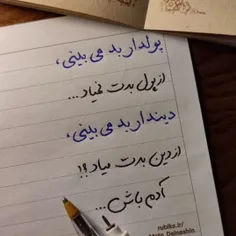 پولدار بد می بینی،
از پول بدت نمیاد...
دیندار بد می بینی،
از دین بدت میاد؟!
آدم باش...
rubika.ir/